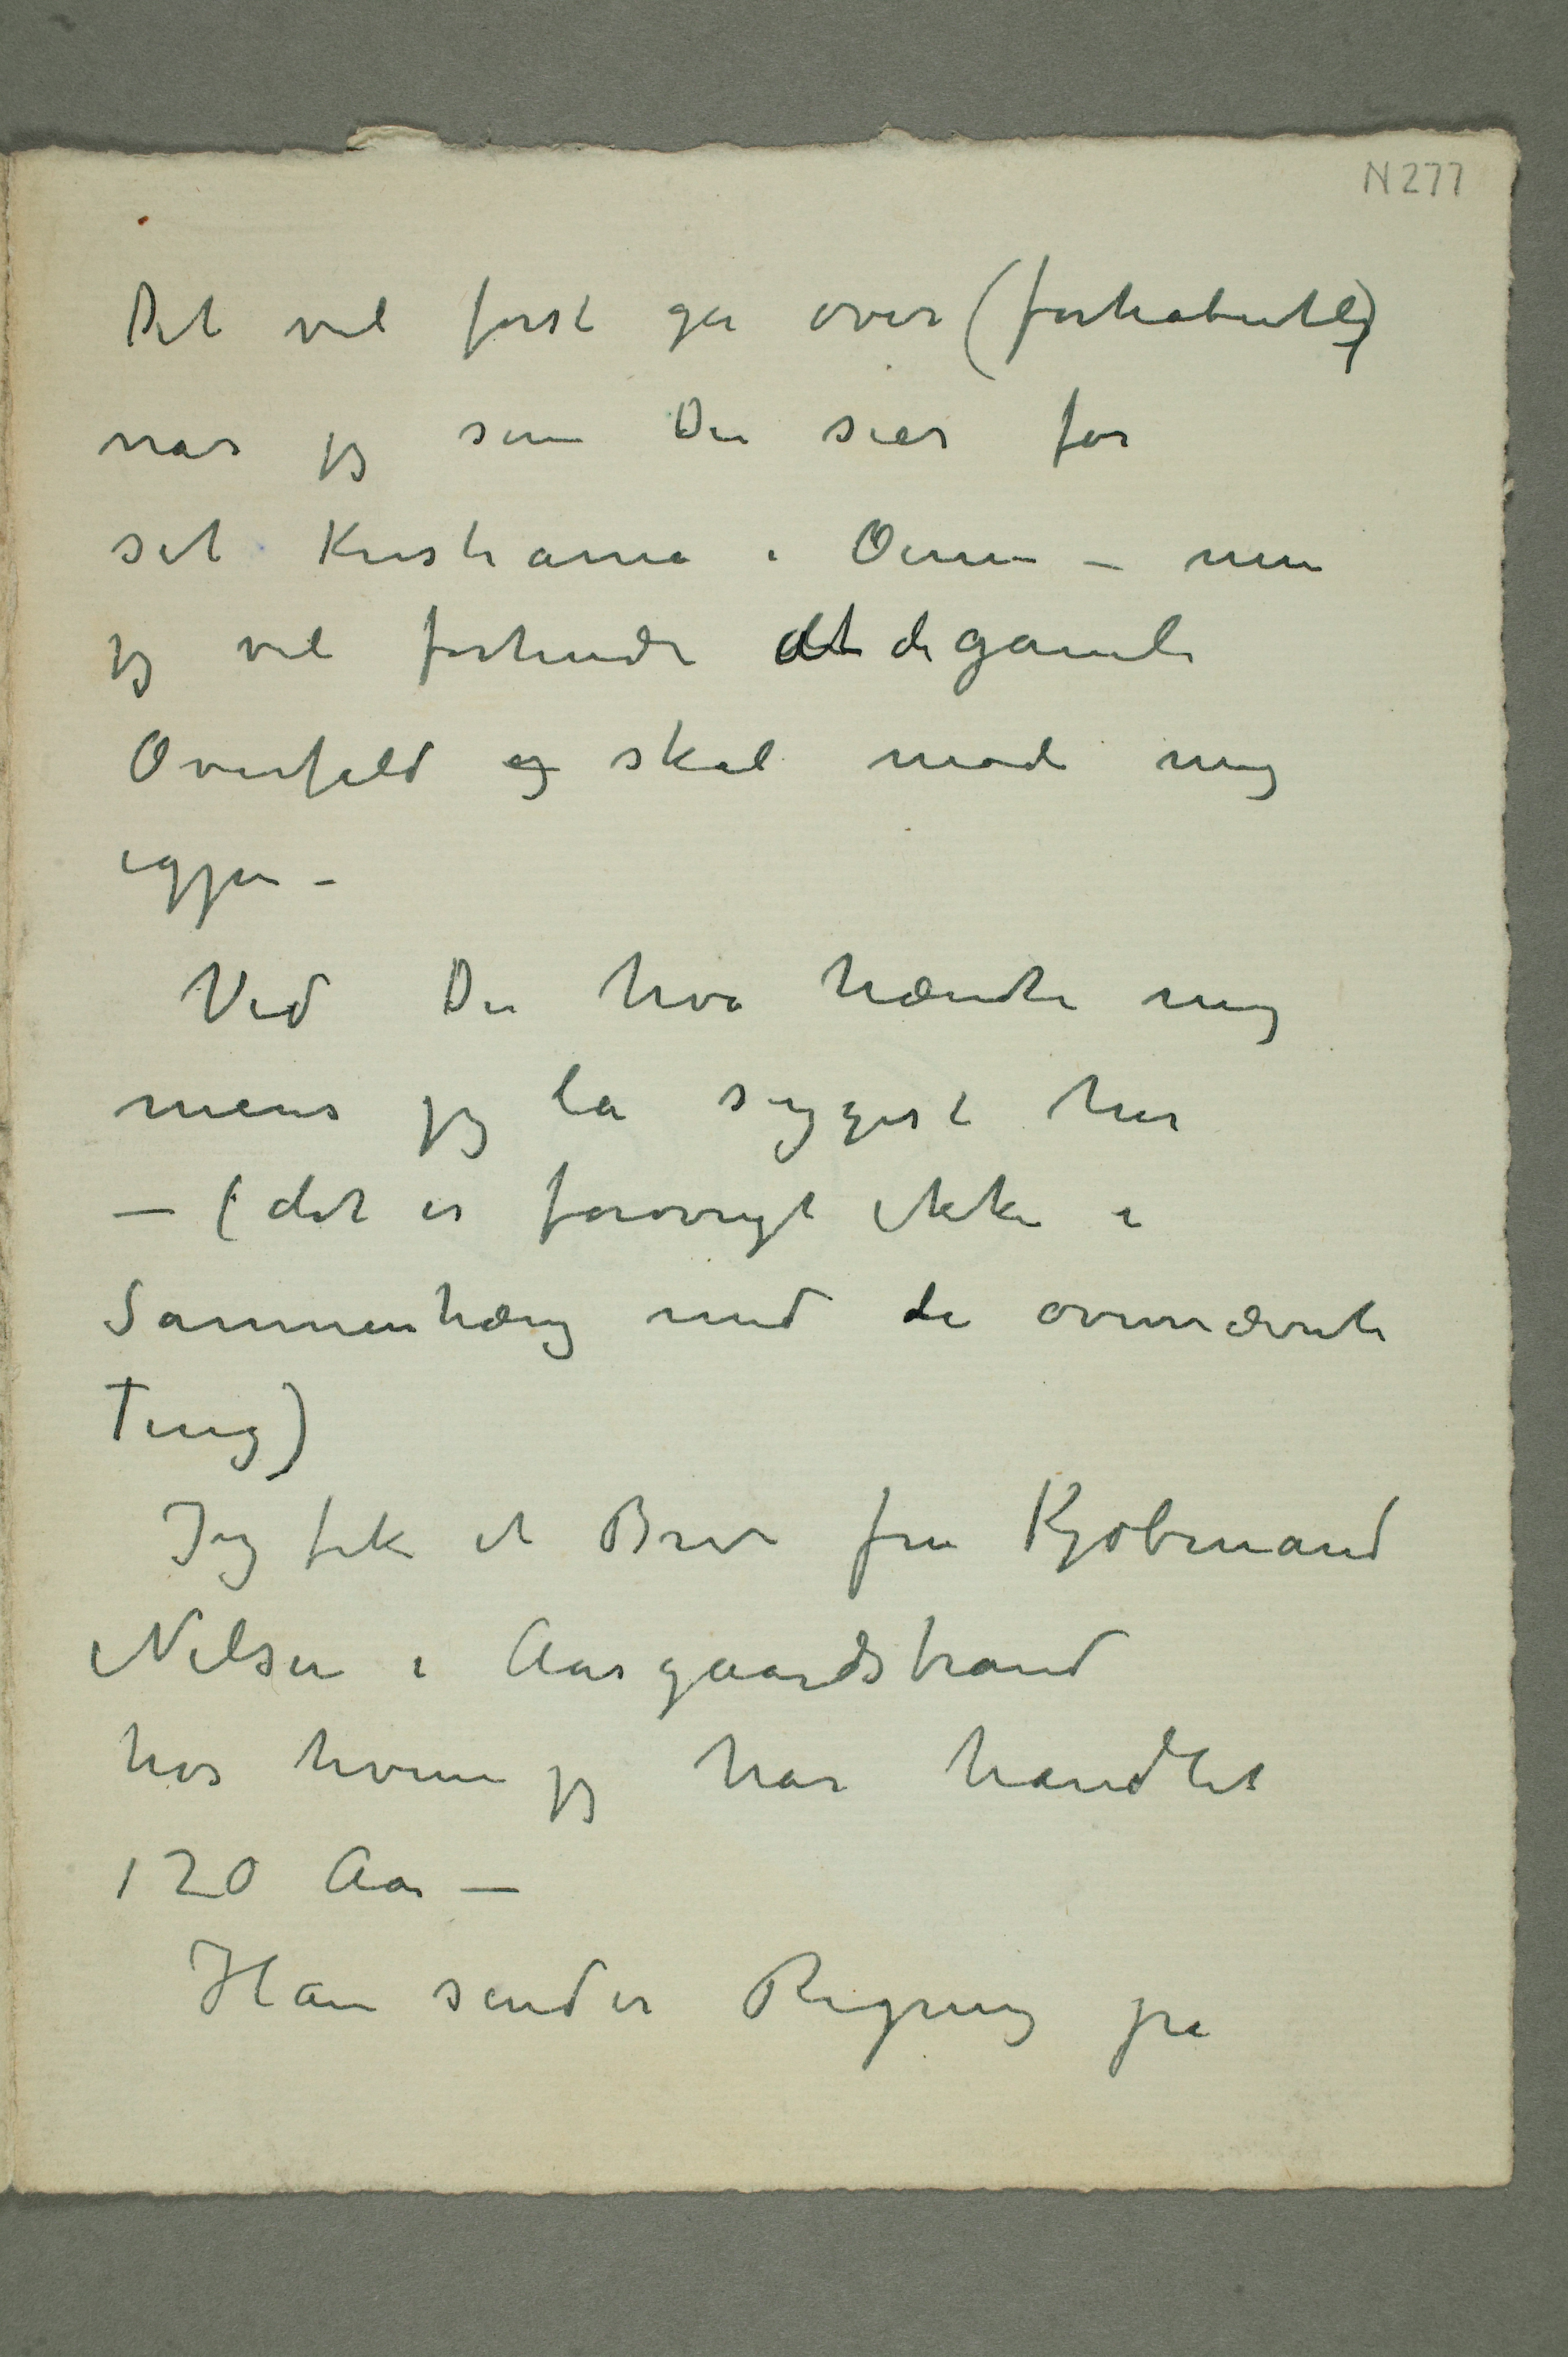 N 277
Det vil først gå over (forhåbentlig)
når jeg som Du sier får
set Kristiania i Öinene – men
jeg vil forhindre at de gamle
Overfald og skal møde mig
igjen –
Ved Du hva hændte mig
mens jeg lå sygest her
– (det er forøvrigt ikke i
Sammenhæng med de ovennævnte
Ting)
Jeg fik et Brev fra Kjøbmand
Nilsen i Aasgaardstrand
hos hvem jeg har handlet
i 20 Aar –
Han sender Regning på